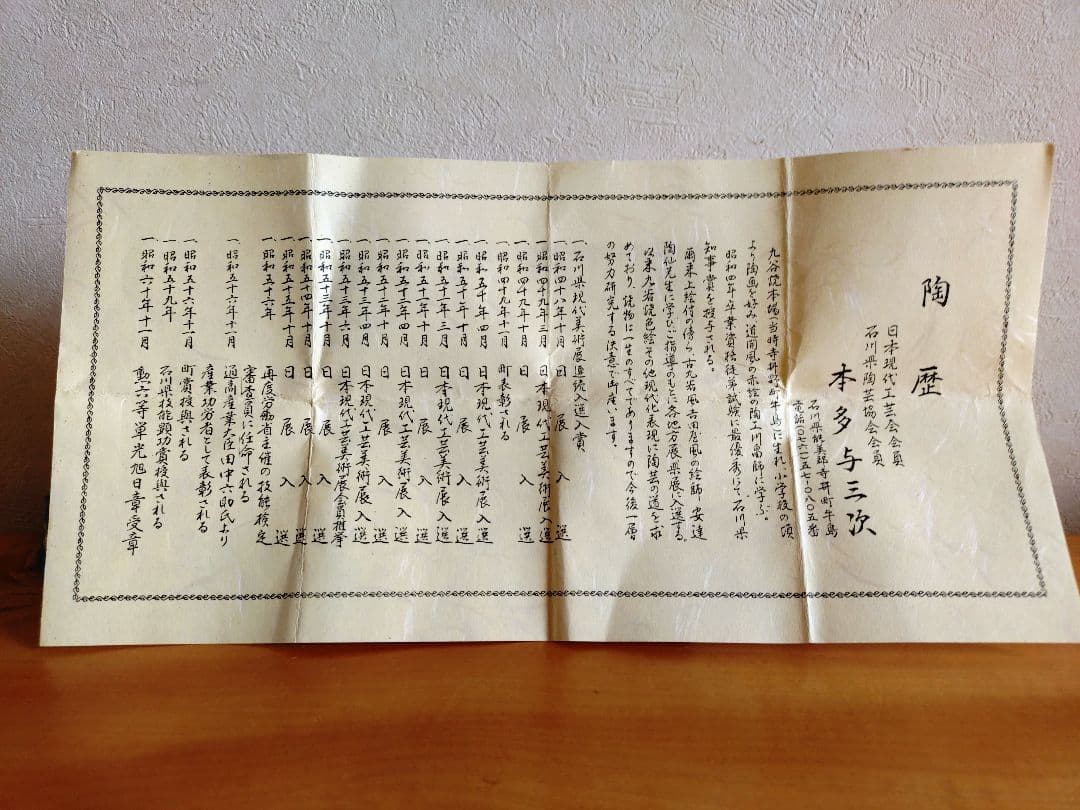 陶歴
日本現代工芸会会員
石川県陶芸協会会員
本多与三次
石川県能美郡寺井町牛島
電話(〇七六一)五七-〇八〇五番
九谷焼本場(当時寺井野町牛島)に生れ、小学校の頃
より陶画を好み道開風の赤絵の陶工川畠師に学ぶ。
昭和四年卒業資格徒弟試験に最優秀にて石川県
知事賞を授与される。
爾来上絵付の傍ら、古九谷風古田屋風の絵師、安達
陶仙先生に学びご指導のもとに各地方展県展に入選する。
以来九谷焼色絵その他現代化表現に陶芸の道を求
めており、焼物に一生のすべてでありますので今後一層
の努力研究する決意で御座います。
一、石川県現代美術展連続入選入賞
一、昭和四十八年十月 日展入選
一、昭和四十九年三月 日本現代工芸美術展入選
一、昭和四十九年十月 日展入選
一、昭和四十九年十一月 町表彰される
一、昭和五十年四月 日本現代工芸美術展入選
一、昭和五十年十月 日展入選
一、昭和五十一年三月 日本現代工芸美術展入選
一、昭和五十一年十月 日展入選
一、昭和五十二年十月 日展入選
一、昭和五十三年四月 日本現代工芸美術展入選
一、昭和五十三年六月 日本現代工芸美術展会員推挙
一、昭和五十三年十月 日展入選
一、昭和五十四年十月 日展入選
一、昭和五十五年十月 日展入選
一、昭和五十六年 再度労働省主催の技能検定
審査員に任命される
一、昭和五十六年十一月 通商産業大臣田中六助氏より
産業功労者として表彰される
一、昭和五十六年十一月 町賞授与される
一、昭和五十九年 石川県技能顕功賞授与される
一、昭和六十年十一月 勲六等単光旭日章受章